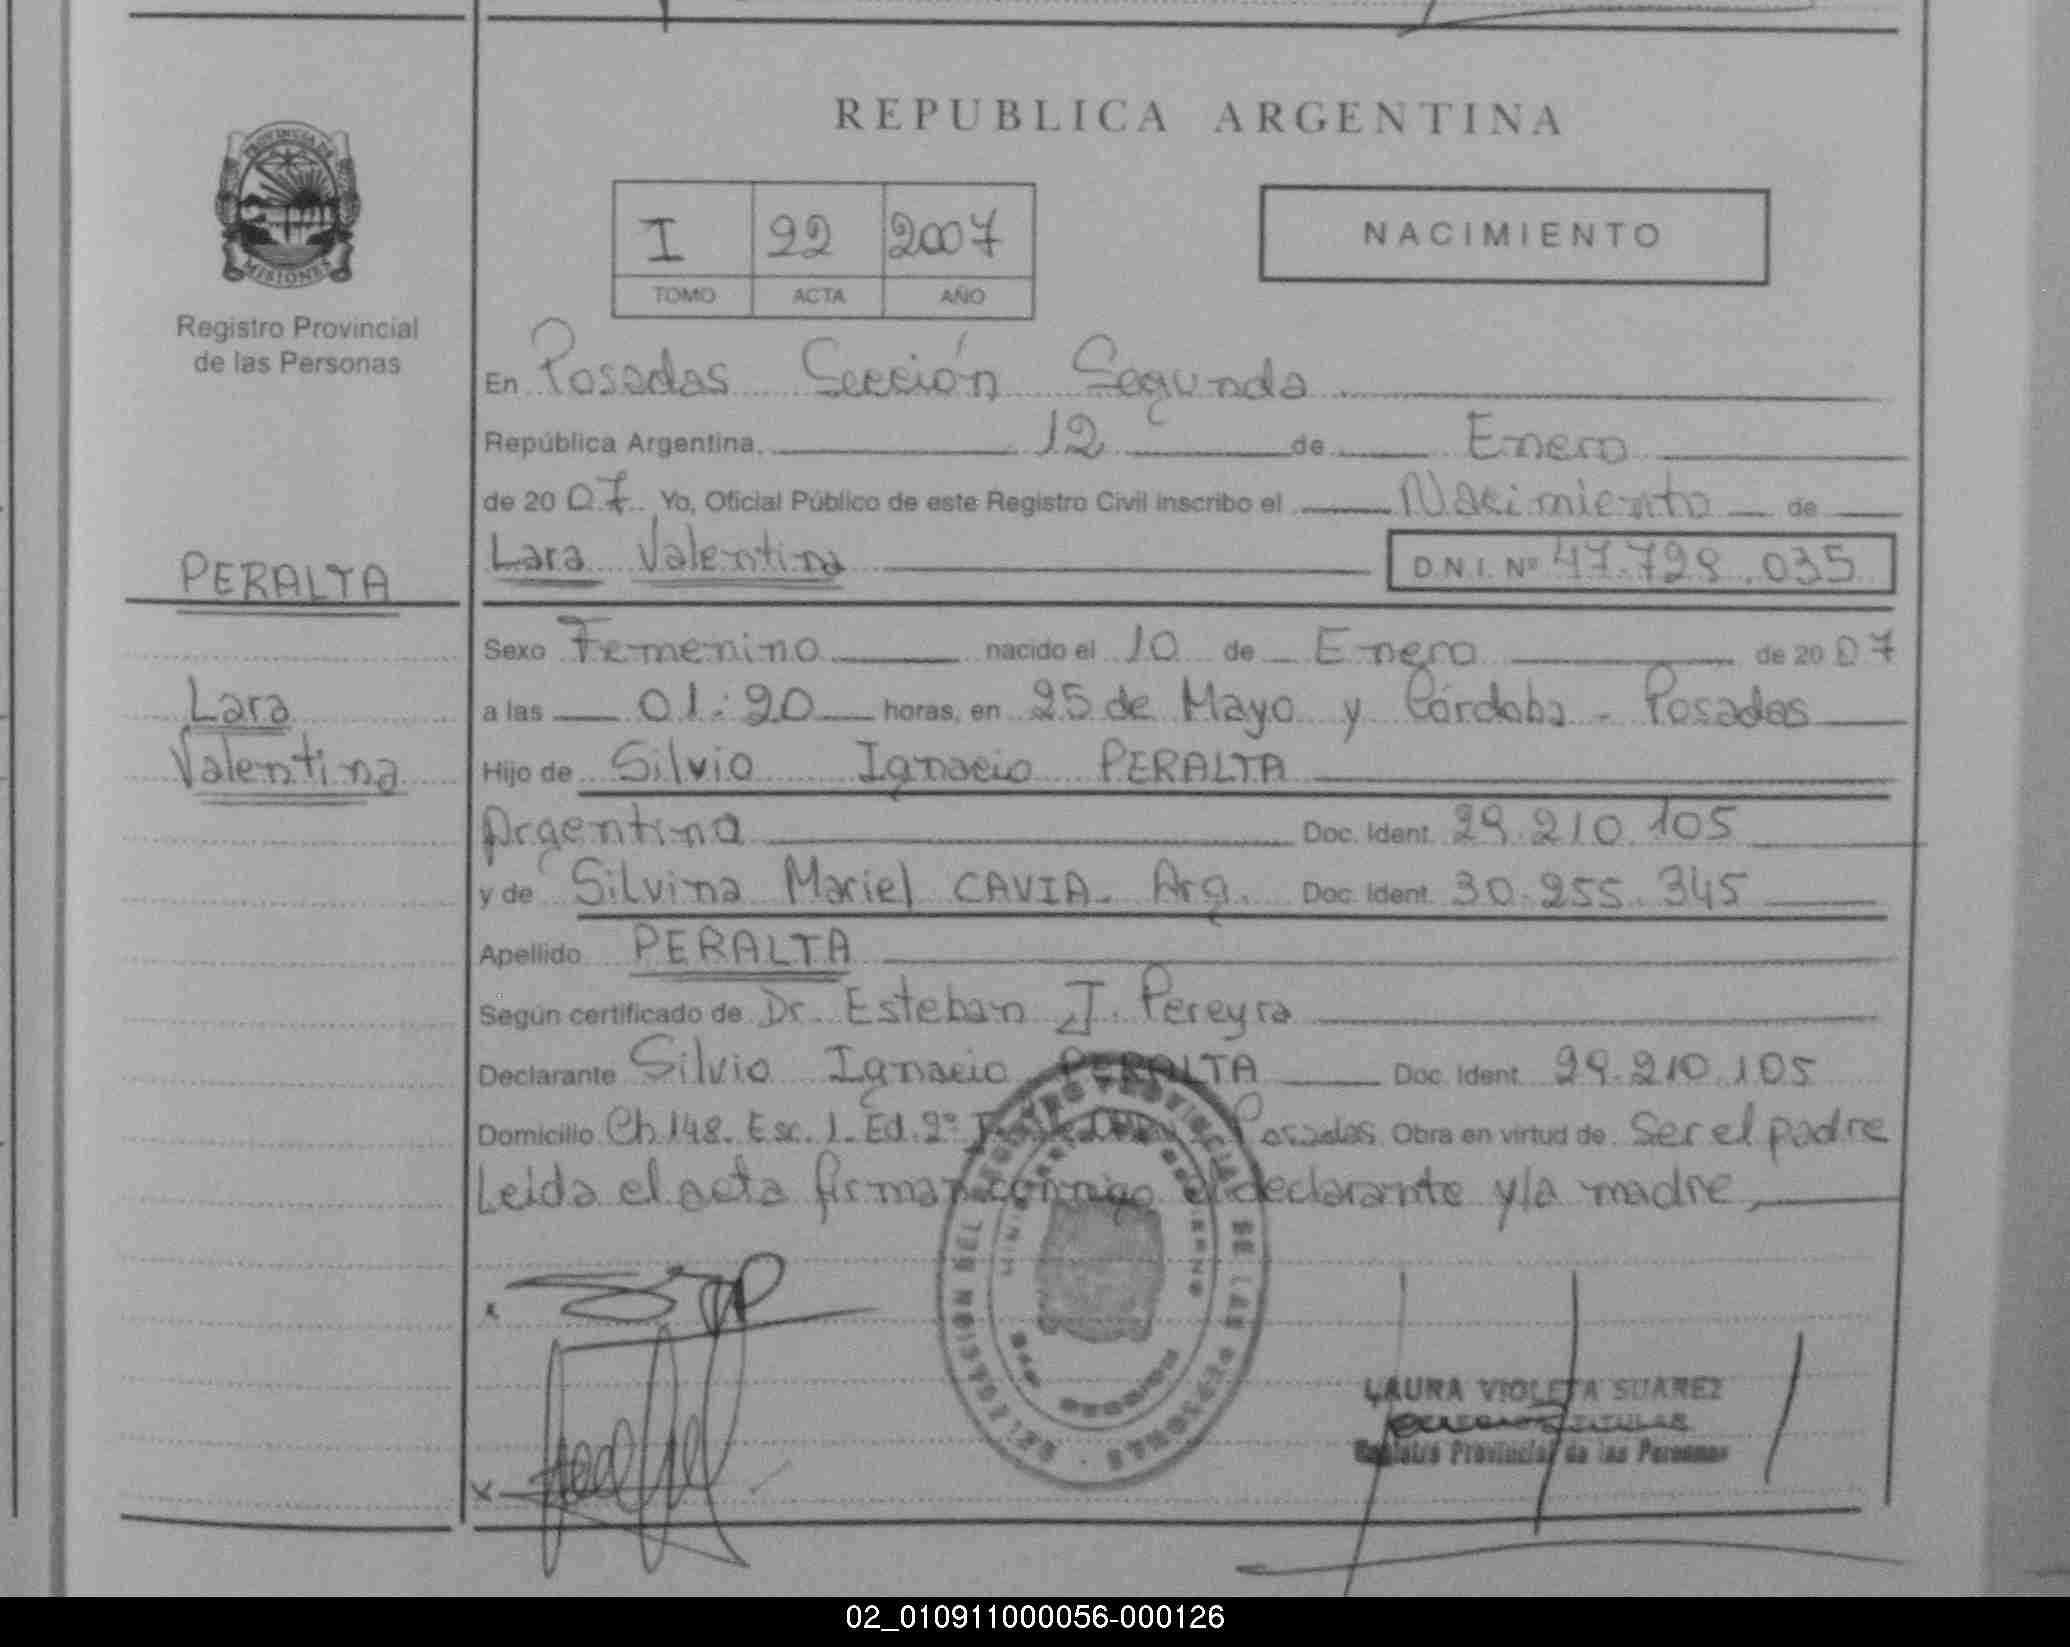 REPUBLICA ARGENTINA
PROVINCIA DE
MISIONES
Registro Provincial
de las Personas
I 22 2007
TOMO ACTA AÑO
NACIMIENTO
En Posadas Sección Segunda
República Argentina, 12 de Enero
de 2007. Yo, Oficial Público de este Registro Civil inscribo el Nacimiento de
Lara Valentina D.N.I. Nº 47.728.035
PERALTA
Lara
Valentina
Sexo Femenino nacido el 10 de Enero de 2007
a las 01:20 horas, en 25 de Mayo y Córdoba - Posadas
Hijo de Silvio Ignacio PERALTA
Argentina Doc. Ident. 29.210.105
y de Silvina Mariel CAVIA. Arg. Doc. Ident. 30.255.345
Apellido PERALTA
Según certificado de Dr. Esteban J. Pereyra
Declarante Silvio Ignacio PERALTA Doc. Ident. 29.210.105
Domicilio Ch 148. Esc. 1. Ed. 2º Posadas Obra en virtud de Ser el padre
Leida el acta firman conmigo el declarante y la madre
REGISTRO PROVINCIAL DE LAS PERSONAS
LAURA VIOLETA SUAREZ
TITULAR
Registro Provincial de las Personas
02_010911000056-000126